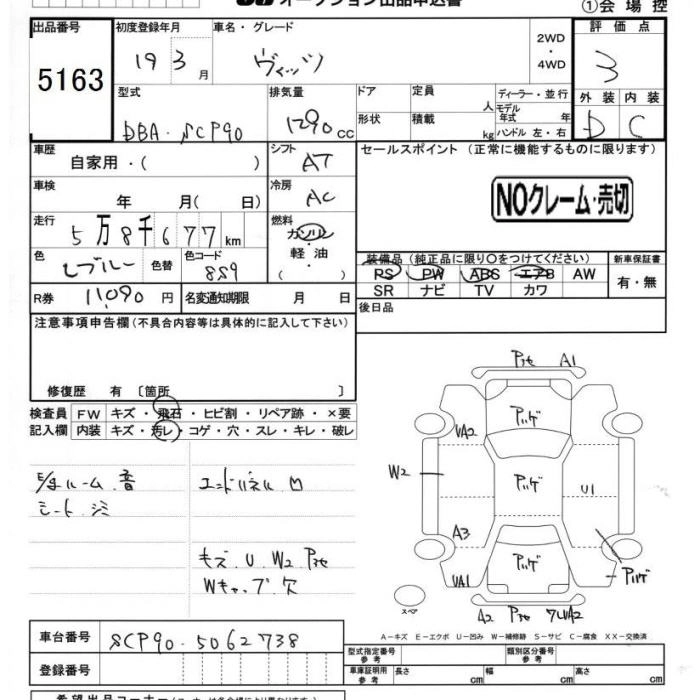 オークション出品申込書 ①会場控
出品番号 初度登録年月 車名・グレード 2WD ・ 4WD 評価点
5163 19 3月 ヴィッツ 3
型式 排気量 ドア 定員 人 ディーラー・並行 外装 内装
DBA-SCP90 1290cc 形状 積載 kg モデル年式 年 ハンドル 左・右 D C
車歴 自家用・( ) シフト AT セールスポイント (正常に機能するものに限ります)
車検 年 月( 日) 冷房 AC NOクレーム・売切
走行 5万8千677km 燃料 ガソリン 軽油 ・( )
色 色替 色コード 8S9 装備品(純正品に限り○をつけてください) 新車保証書
ブルー PS PW ABS エアB AW 有・無
R券 11,090円 名変通知期限 月 日 SR ナビ TV カワ
注意事項申告欄(不具合内容等は具体的に記入して下さい) 後日品
修復歴 有 〔箇所 〕
検査員 FW キズ・飛石・ヒビ割・リペア跡・×要
記入欄 内装 キズ・汚レ・コゲ・穴・スレ・キレ・破レ
ルーム 音 エンドパネル
シート シミ
キズ U W2
Wキャップ 穴
A1
UA2
W2
U1
A3
UA1
スペア
A2 UA2
A-キズ E-エクボ U-凹み W-補修跡 S-サビ C-腐食 XX-交換済
車台番号 SCP90-5062738 型式指定番号 参考 類別区分番号 参考
登録番号 車庫証明用 参考 長さ cm 幅 cm 高さ cm
希望出品コーナー